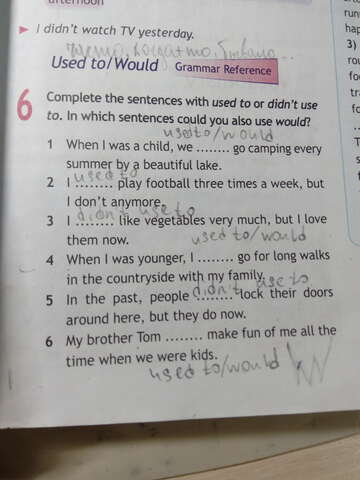 afternoon
► I didn't watch TV yesterday.
Used to/Would Grammar Reference
6 Complete the sentences with used to or didn't use
to. In which sentences could you also use would?
used to/would
1 When I was a child, we ........ go camping every
summer by a beautiful lake.
used to
2 I ........ play football three times a week, but
I don't anymore.
didn't use to
3 I ........ like vegetables very much, but I love
them now.
used to/would
4 When I was younger, I ........ go for long walks
in the countryside with my family.
didn't use to
5 In the past, people ........ lock their doors
around here, but they do now.
6 My brother Tom ........ make fun of me all the
time when we were kids.
used to/would